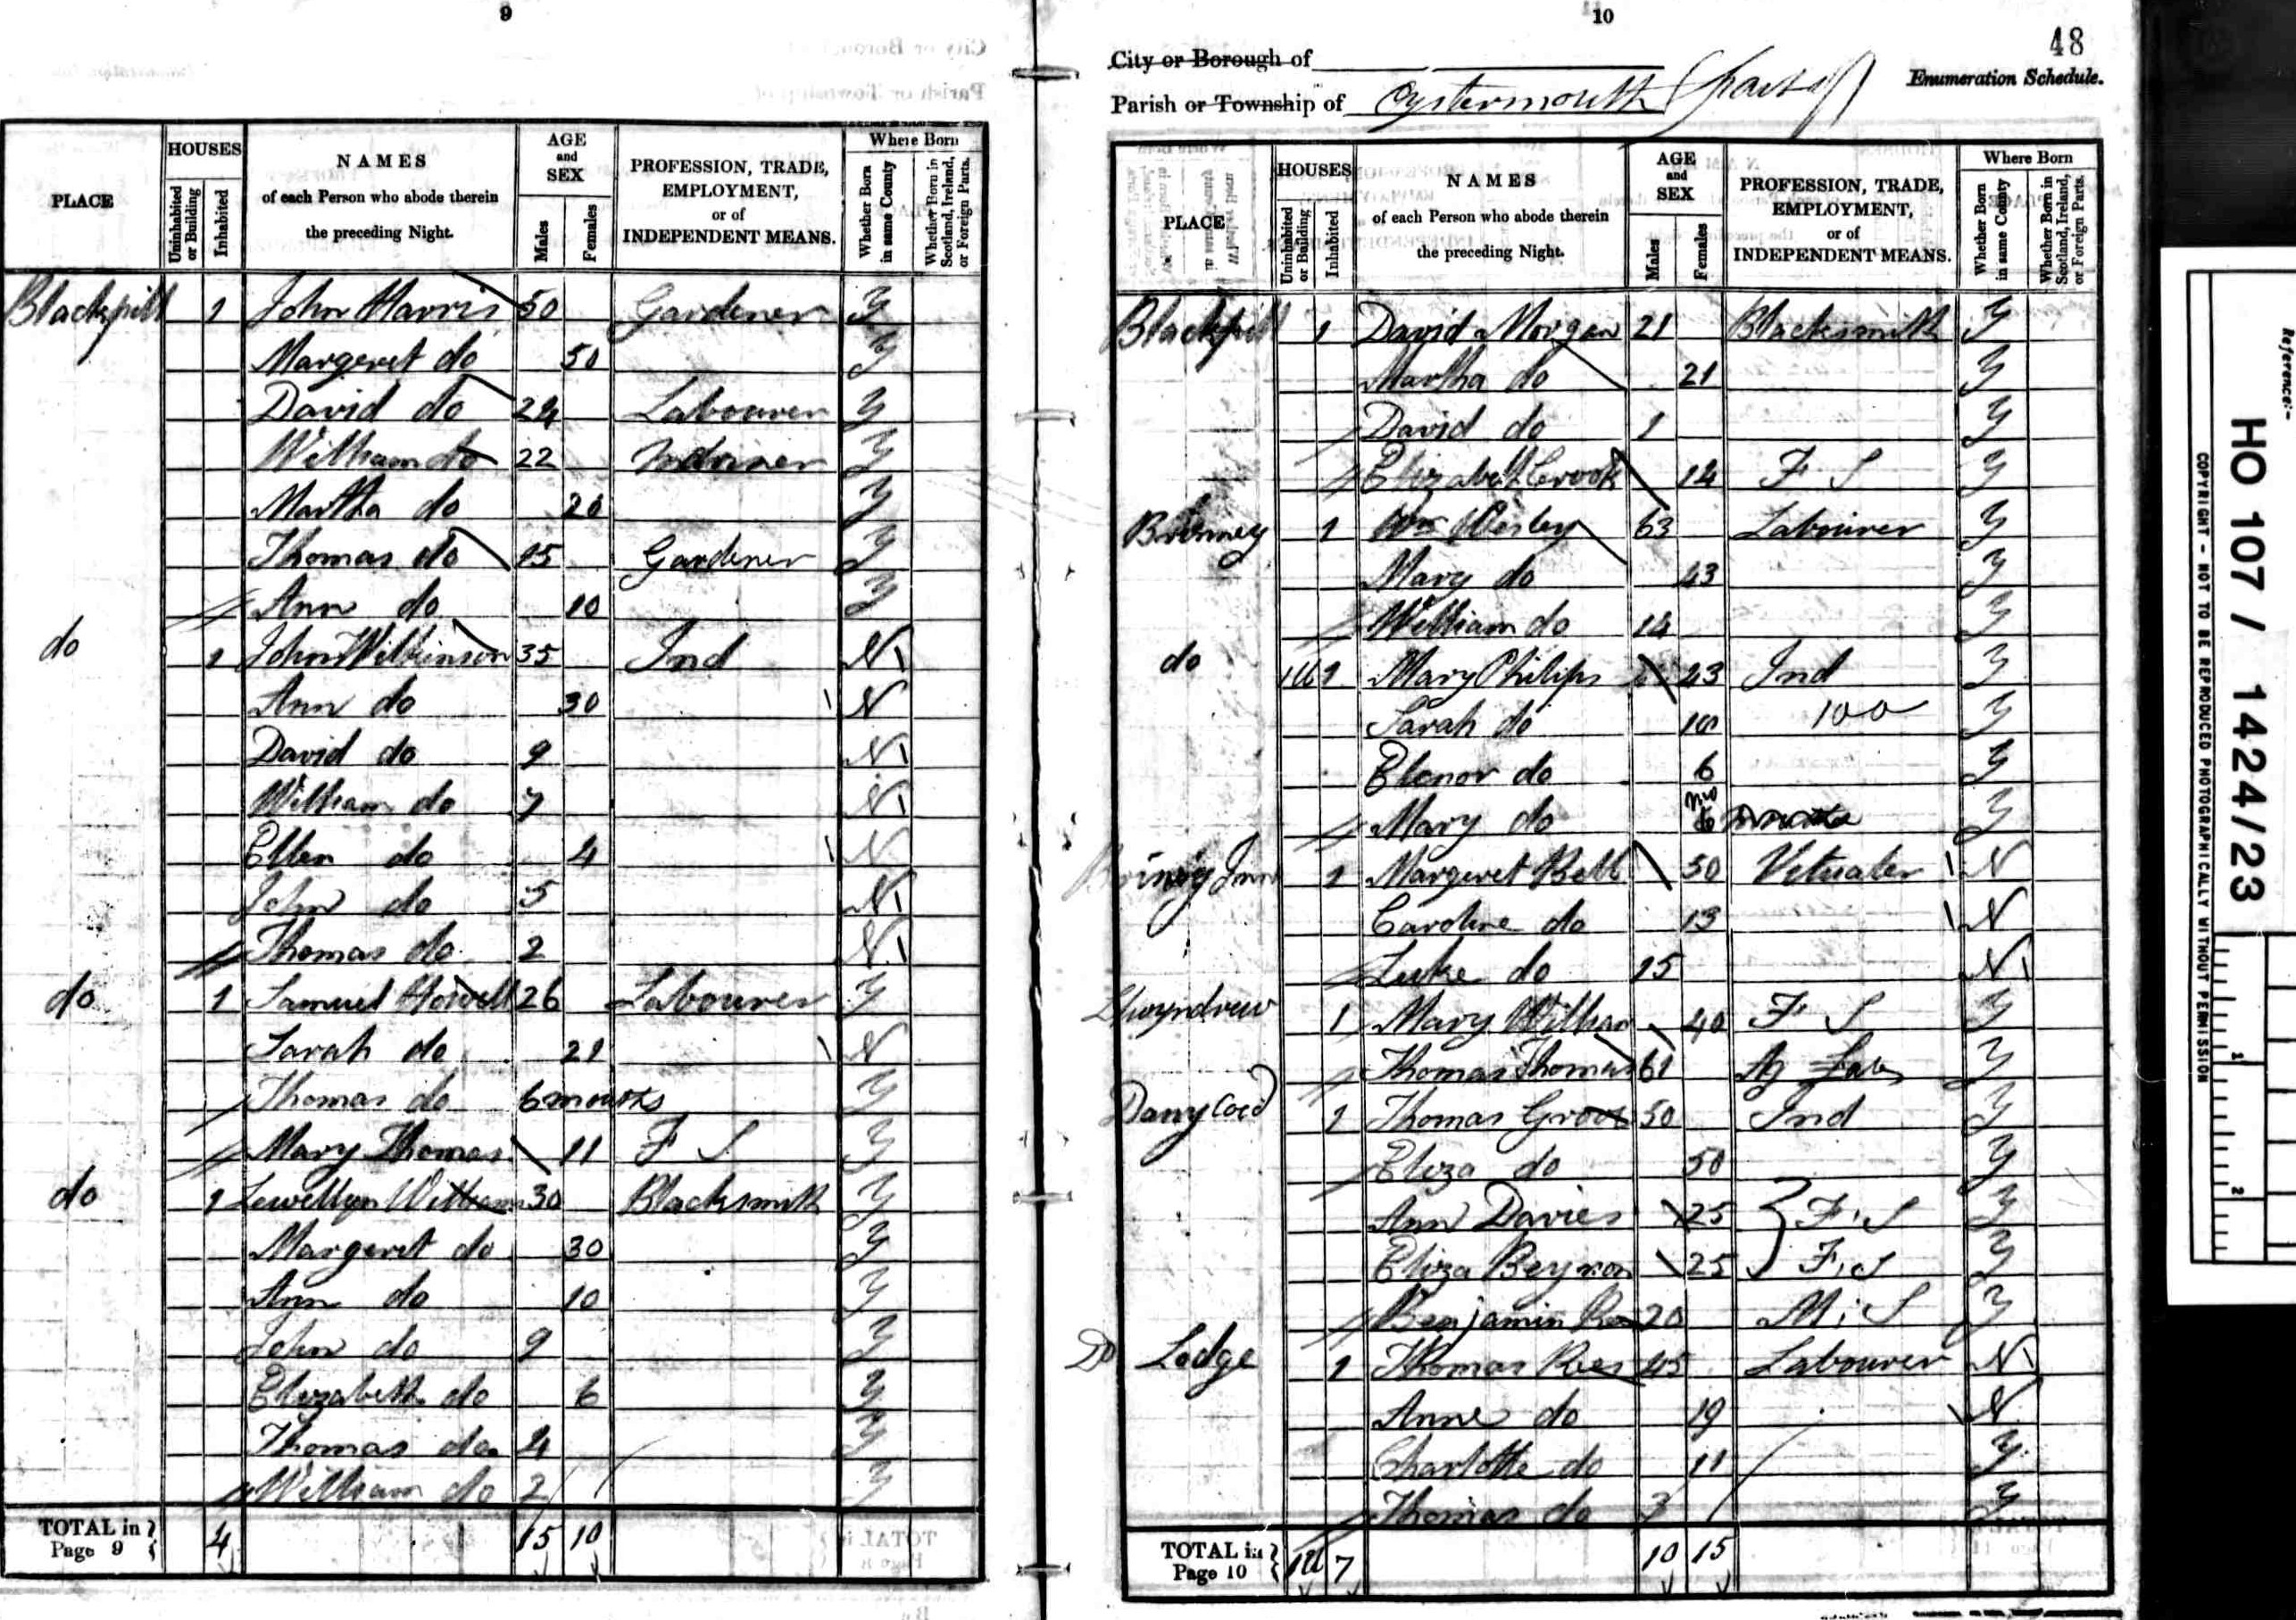 9
PLACE
HOUSES
Uninhabited or Building
Inhabited
NAMES
of each Person who abode therein
the preceding Night.
AGE
and
SEX
Males
Females
PROFESSION, TRADE,
EMPLOYMENT,
or of
INDEPENDENT MEANS.
Where Born
Whether Born in same County
Whether Born in Scotland, Ireland, or Foreign Parts.
Blackpill 1 John Harris 50 Gardener Y
Margeret do 50 Y
David do 24 Labourer Y
William do 22 Mariner Y
Martha do 20 Y
Thomas do 15 Gardener Y
Ann do 10 Y
do 1 John Wilkinson 35 Ind N
Ann do 30 N
David do 9 N
William do 7 N
Ellen do 4 N
John do 5 N
Thomas do 2 N
do 1 Samuel Howell 26 Labourer Y
Sarah do 21 N
Thomas do 6 months Y
Mary Thomas 11 F S Y
do 1 Lewellyn Williams 30 Blacksmith Y
Margeret do 30 Y
Ann do 10 Y
John do 9 Y
Elizabeth do 6 Y
Thomas do 4 Y
William do 2 Y
TOTAL in Page 9 4 15 10
10
48
City or Borough of
Enumeration Schedule.
Parish or Township of Oystermouth (part of)
PLACE
HOUSES
Uninhabited or Building
Inhabited
NAMES
of each Person who abode therein
the preceding Night.
AGE
and
SEX
Males
Females
PROFESSION, TRADE,
EMPLOYMENT,
or of
INDEPENDENT MEANS.
Where Born
Whether Born in same County
Whether Born in Scotland, Ireland, or Foreign Parts.
Blackpill 1 David Morgan 21 Blacksmith Y
Martha do 21 Y
David do 1 Y
Elizabeth Crook 14 F S Y
1 Wm Wesley 63 Labourer Y
Mary do 43 Y
William do 14 Y
do 1U 1 Mary Philips 43 Ind Y
Sarah do 10 Y
Elenor do 6 Y
Mary do mo 6 Y
Inn 1 Margeret Bell 50 Vitualer N
Caroline do 13 N
Luke do 15 N
Llwyndrew 1 Mary William 40 F S Y
Thomas Thomas 61 Ag Lab Y
Dany Coed 1 Thomas Grove 50 Ind Y
Eliza do 50 Y
Ann Davies 25 F. S Y
Eliza Beynon 25 F. S Y
Benjamin Rees 20 M. S Y
Do Lodge 1 Thomas Rees 45 Labourer N
Anne do 19 N
Charlotte do 11 Y
Thomas do 7 Y
TOTAL in Page 10 1U 7 10 15
Reference:-
HO 107 / 1424/23
COPYRIGHT - NOT TO BE REPRODUCED PHOTOGRAPHICALLY WITHOUT PERMISSION
1
2